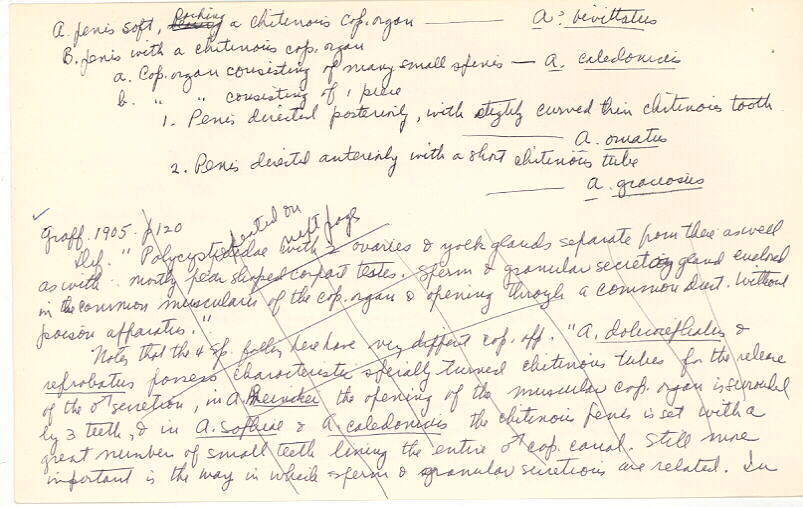 A. penis soft, lacking a chitenois cop. organ —— A? bivittatus
B. penis with a chitenois cop. organ
a. Cop. organ consisting of many small spines — A. caledonicis
b. " " consisting of 1 piece
1. Penis directed posteriorly, with slightly curved thin chitenois tooth
—— A. ornatus
2. Penis directed anteriorly with a short chitenois tube
—— A. graciosus
✓
Graff. 1905. p 120
repeated on next page
Def. " Polycystididae with 2 ovaries & yolk glands separate from these as well
as with mostly pear shaped compact testes. Sperm & granular secretory gland enclosed
in the common muscularis of the cop. organ & opening through a common duct. Without
poison apparatus."
Notes that the 4 sp. here have very different cop. app. "A. &
reprobatus possess characteristic spirally turned chitenois tubes for the release
of the ♂ secretion, in A. steinickei the opening of the muscular cop. organ is surrounded
by 3 teeth, & in A. sophiae & A. caledonicis the chitenois penis is set with a
great number of small teeth lining the entire ♂ cop. canal. Still more
important is the way in which sperm & granular secretions are related. In